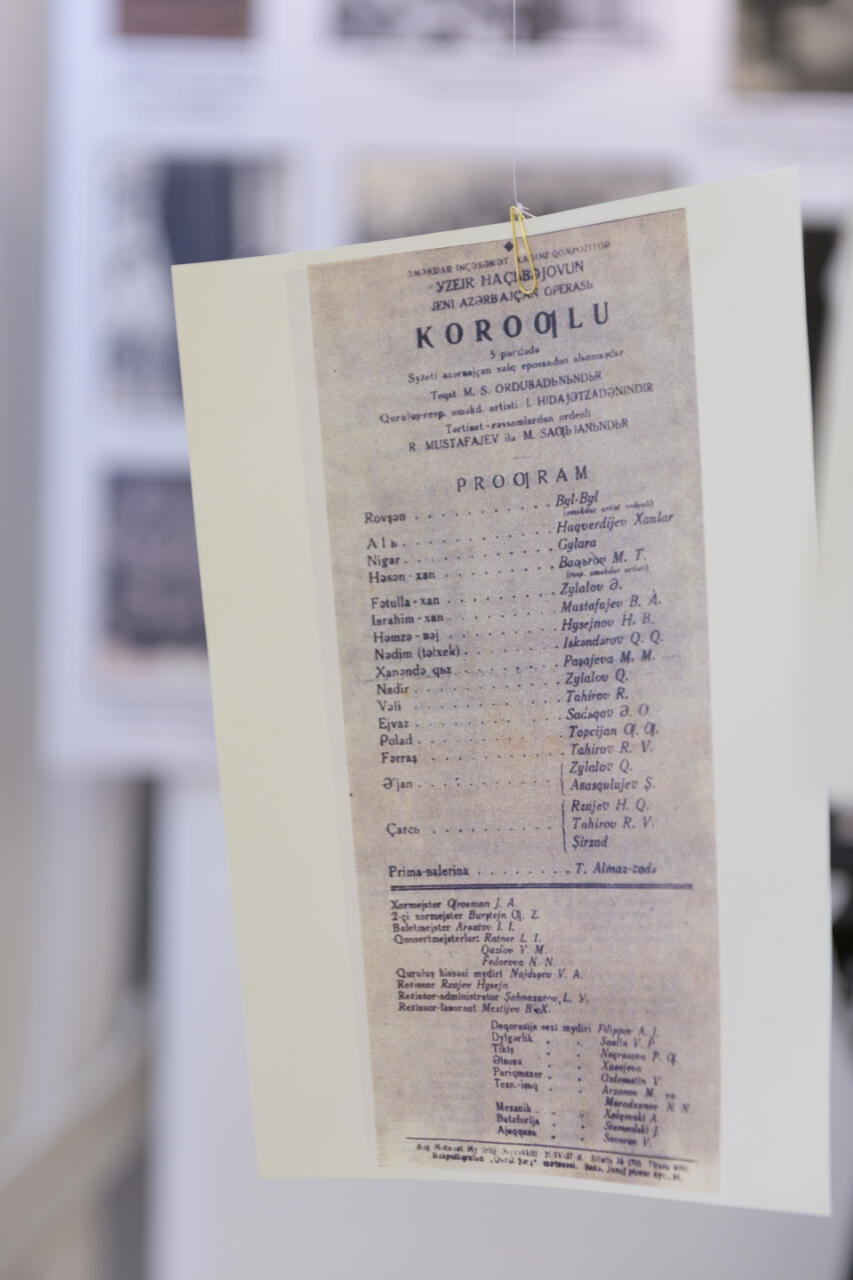 ƏMƏKDAR INÇƏSƏNƏT XADIMI QOMPOZITOR
YZEIR HAÇЬBƏJOVUN
JENI AZƏRBAJÇAN OPERASЬ
KOROƢLU
5 pərdədə
Syƶeti azərʙajçan xalq eposundan alьnmьşdьr
Teqst M. S. ORDUBADЬNЬNDЬR
Quruluş-resp. əməkd. artisti I. HIDAJƏTZADƏNINDIR
Tərtiʙat-rəssamlardan ordenli
R. MUSTAFAJEV ilə M. SAƢЬJANЬNDЬR
PROƢRAM
Rovşən . . . . . . . . . . Byl-Byl
(əməkdar artist ordenli)
Alь . . . . . . . . . . Haqverdijev Xanlar
Nigar . . . . . . . . . . Gylara
Həsən-xan . . . . . . . . . . Baƣьrov M. T.
(resp. əməkdar artisti)
Fətulla-xan . . . . . . . . . . Zylalov Ə.
Iʙrahim-xan . . . . . . . . . . Mustafajev B. A.
Həmzə-ʙəj . . . . . . . . . . Hysejnov H. B.
Nədim (təlxek) . . . . . . . . . . Iskəndərov Q. Q.
Xanəndə qьz . . . . . . . . . . Paşajeva M. M.
Nadir . . . . . . . . . . Zylalov Q.
Vəli . . . . . . . . . . Tahirov R.
Ejvaz . . . . . . . . . . Sadьqov Ə. O.
Polad . . . . . . . . . . Topcijan Ƣ. Ƣ.
Fərraş . . . . . . . . . . Tahirov R. V.
Zylalov Q.
Ə'jan . . . . . . . . . . Aʙasqulujev Ş.
Rzajev H. Q.
Carcь . . . . . . . . . . Tahirov R. V.
Şirzad
Prima-ʙalerina . . . . . . . . T. Almaz-zadə
Xormejster Ƣrosman J. A.
2-çi xormejster Burştejn Ƣ. Z.
Baletmejster Arʙatov I. I.
Qonsertmejsterlər: Ratner L. I.
Qazlov V. M.
Fedorova N. N.
Quruluş hissəsi mydiri Najdьşev V. A.
Reƶissor Rzajev Hysejn
Reƶissor-administrator Şahnazarov L. Y.
Reƶissor-laʙorant Mextijev B. X.
Deqorasija sexi mydiri Filippov A. J.
Dylgərlik " " V. P.
Tikiş " " Neqrasova P. Ƣ.
Əlʙisə " " Xaʙejeva
Pariqmaxer " " V.
Texn.-işьq " " Arzanov M. və
N. N.
Mexanik " " Xalqovski A.
Butaforija " " J.
Ajaqqaʙь " " V.